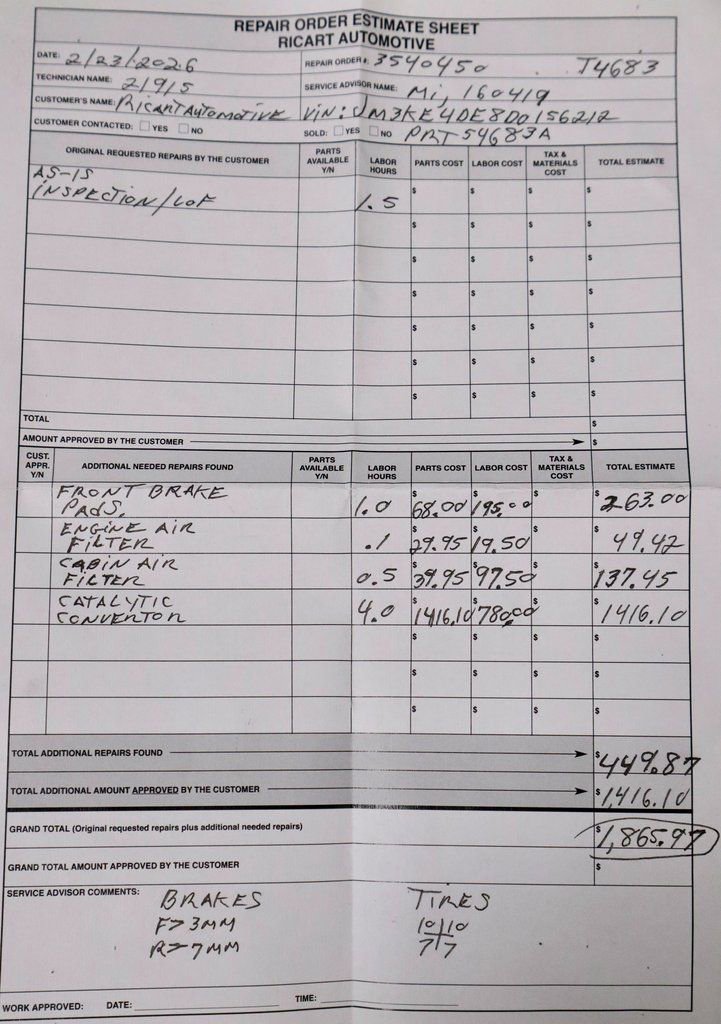 REPAIR ORDER ESTIMATE SHEET
RICART AUTOMOTIVE
DATE: 2/23/2026 REPAIR ORDER #: 3540450 T4683
TECHNICIAN NAME: 21915 SERVICE ADVISOR NAME: Mi, 160419
CUSTOMER'S NAME: RICART AUTOMOTIVE VIN: JM3KE4DE8D0156212
CUSTOMER CONTACTED: YES NO SOLD: YES NO PRT54683A
ORIGINAL REQUESTED REPAIRS BY THE CUSTOMER PARTS AVAILABLE Y/N LABOR HOURS PARTS COST LABOR COST TAX & MATERIALS COST TOTAL ESTIMATE
AS-IS $ $ $ $
INSPECTION/LOF 1.5
$ $ $ $
$ $ $ $
$ $ $ $
$ $ $ $
$ $ $ $
$ $ $ $
TOTAL $
AMOUNT APPROVED BY THE CUSTOMER $
CUST. APPR. Y/N ADDITIONAL NEEDED REPAIRS FOUND PARTS AVAILABLE Y/N LABOR HOURS PARTS COST LABOR COST TAX & MATERIALS COST TOTAL ESTIMATE
FRONT BRAKE
PADS. 1.0 $68.00 $195.00 $ $263.00
ENGINE AIR
FILTER .1 $29.95 $19.50 $ $49.42
CABIN AIR
FILTER 0.5 $39.95 $97.50 $ $137.45
CATALYTIC
CONVERTOR 4.0 $1416.10 $780.00 $ $1416.10
$ $ $ $
$ $ $ $
$ $ $ $
TOTAL ADDITIONAL REPAIRS FOUND $449.87
TOTAL ADDITIONAL AMOUNT APPROVED BY THE CUSTOMER $1,416.10
GRAND TOTAL (Original requested repairs plus additional needed repairs) $1,865.97
GRAND TOTAL AMOUNT APPROVED BY THE CUSTOMER $
SERVICE ADVISOR COMMENTS: BRAKES TIRES
F> 3MM 10|10
R> 7MM 7|7
WORK APPROVED: DATE: TIME: